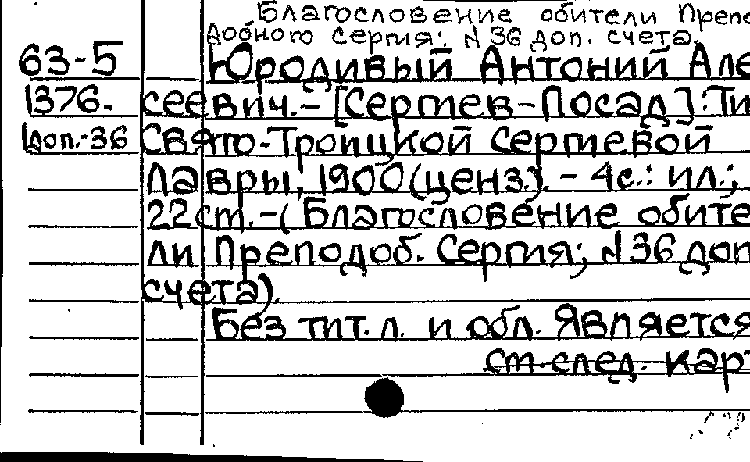 Благословение обители Препо
добного Сергия; N 36 доп. счета.
63-5 Юродивый Антоний Але
1376. сеевич.-[Сергиев-Посад]:Ти
1доп.-36 Свято-Троицкой Сергиевой
Лавры, 1900(ценз.). - 4с.: ил.;
22см.-(Благословение обите
ли Преподоб. Сергия; N 36 доп
счета).
Без тит. л. и обл. Является
см. след. кар